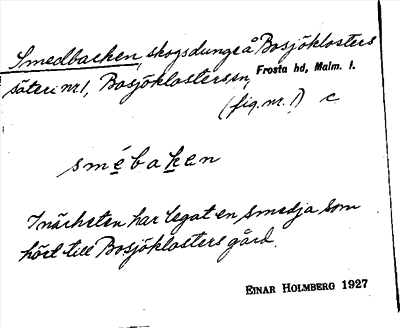 Smedbacken, skogsdunge å Bosjöklosters
säteri nr. 1, Bosjöklosters sn, Frosta hd, Malm. l.
(fig. nr. 1) c
smébaken
I närheten har legat en smedja som
hört till Bosjöklosters gård.
EINAR HOLMBERG 1927